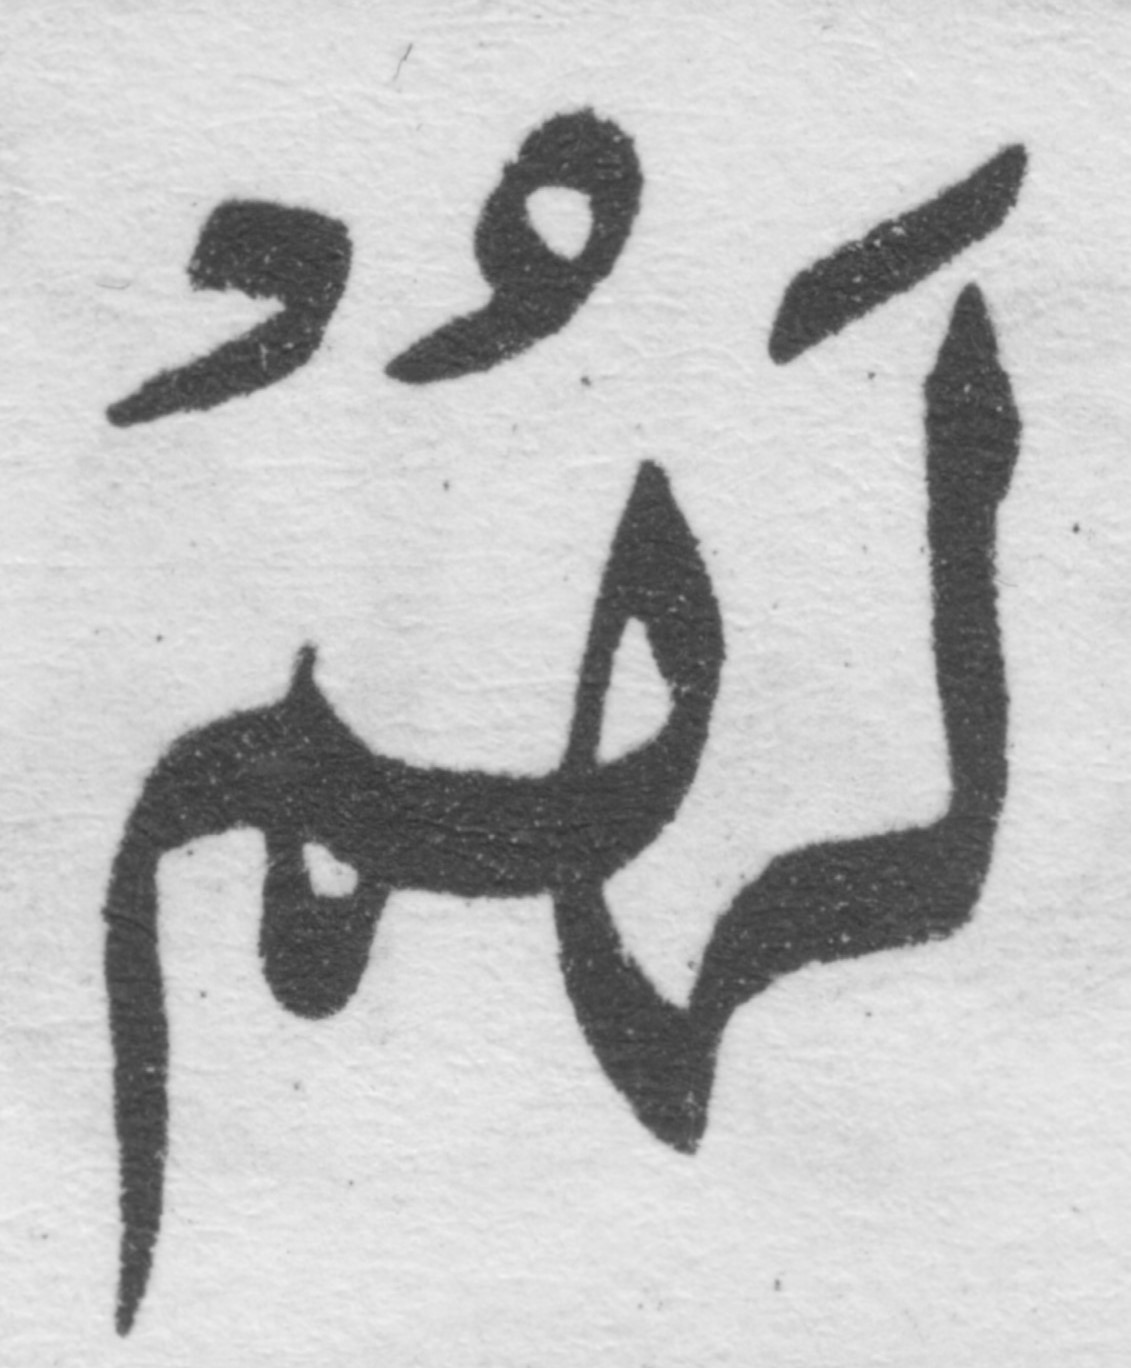 لَهُمْ